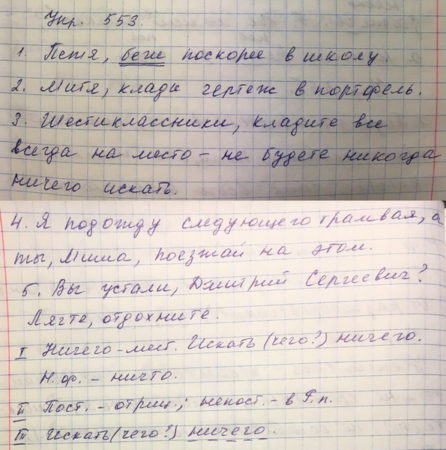 Упр. 553.
1. Петя, беги поскорее в школу.
2. Митя, клади чертеж в портфель.
3. Шестиклассники, кладите все
всегда на место – не будете никогда
ничего искать.
4. Я подожду следующего трамвая, а
ты, Миша, поезжай на этом.
5. Вы устали, Дмитрий Сергеевич?
Лягте, отдохните.
I Ничего – мест. Искать (чего?) ничего.
Н.ф. – ничто.
II Пост. – отриц.; непост. – в Р.п.
III Искать (чего?) ничего.